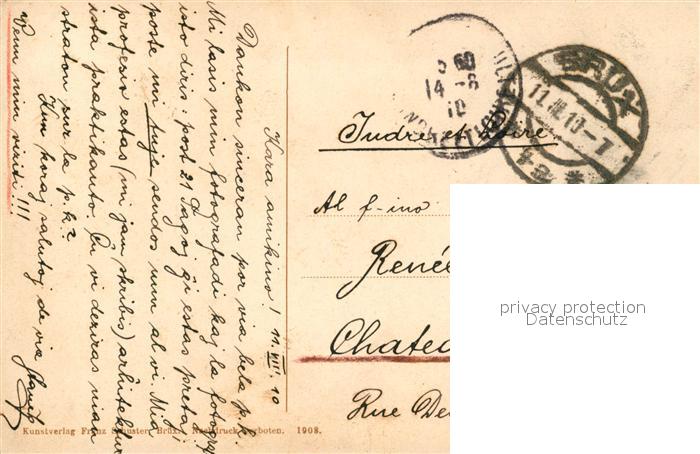 Kara amikino! 11.VIII.10
Dankon sinceran por via bela p.k.
Mi lasis min fotografadi kaj la fotogr.
isto diris: post 21 Tagoj ĝi estas preta;
poste mi tuje sendos unu al vi. Mia
profesio estas (mi jam skribis) arĥitektur
ista praktikanto. Ĉu vi deziras mian
straton sur la p.k.?
Kun koraj salutoj de via
Venu min viziti!!!
Kunstverlag Franz Schuster, Brüx. Nachdruck verboten. 1908.
BRÜX
11.VIII.10-7
14-8
10
Indre et Loire
Al f-ino
Renée
Chatea
Rue De
privacy protection
Datenschutz